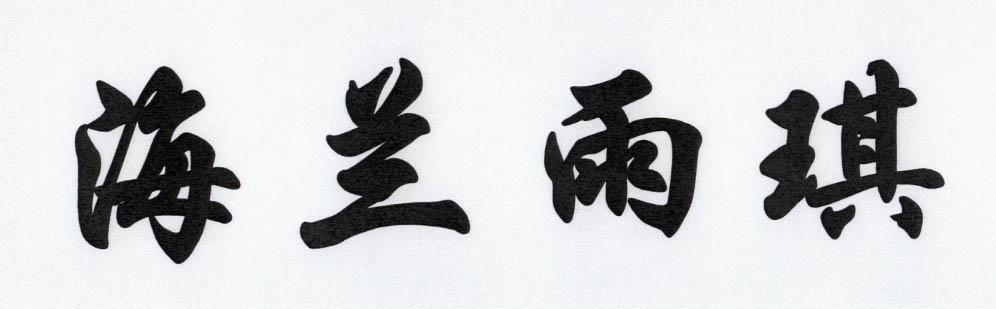 海兰雨琪